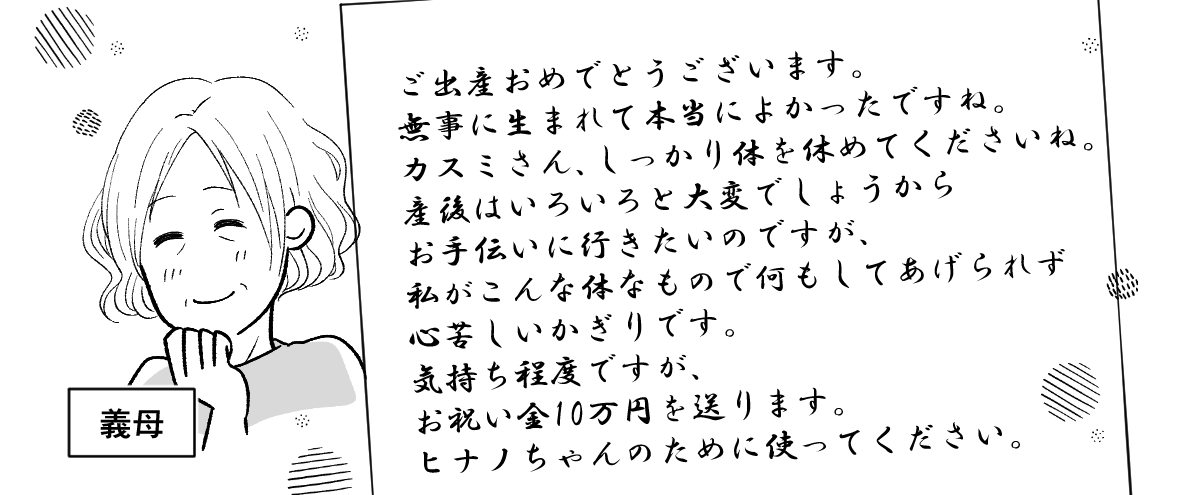 ご出産おめでとうございます。
無事に生まれて本当によかったですね。
カスミさん、しっかり体を休めてくださいね。
産後はいろいろと大変でしょうから
お手伝いに行きたいのですが、
私がこんな体なもので何もしてあげられず
心苦しいかぎりです。
気持ち程度ですが、
お祝い金10万円を送ります。
ヒナノちゃんのために使ってください。
義母